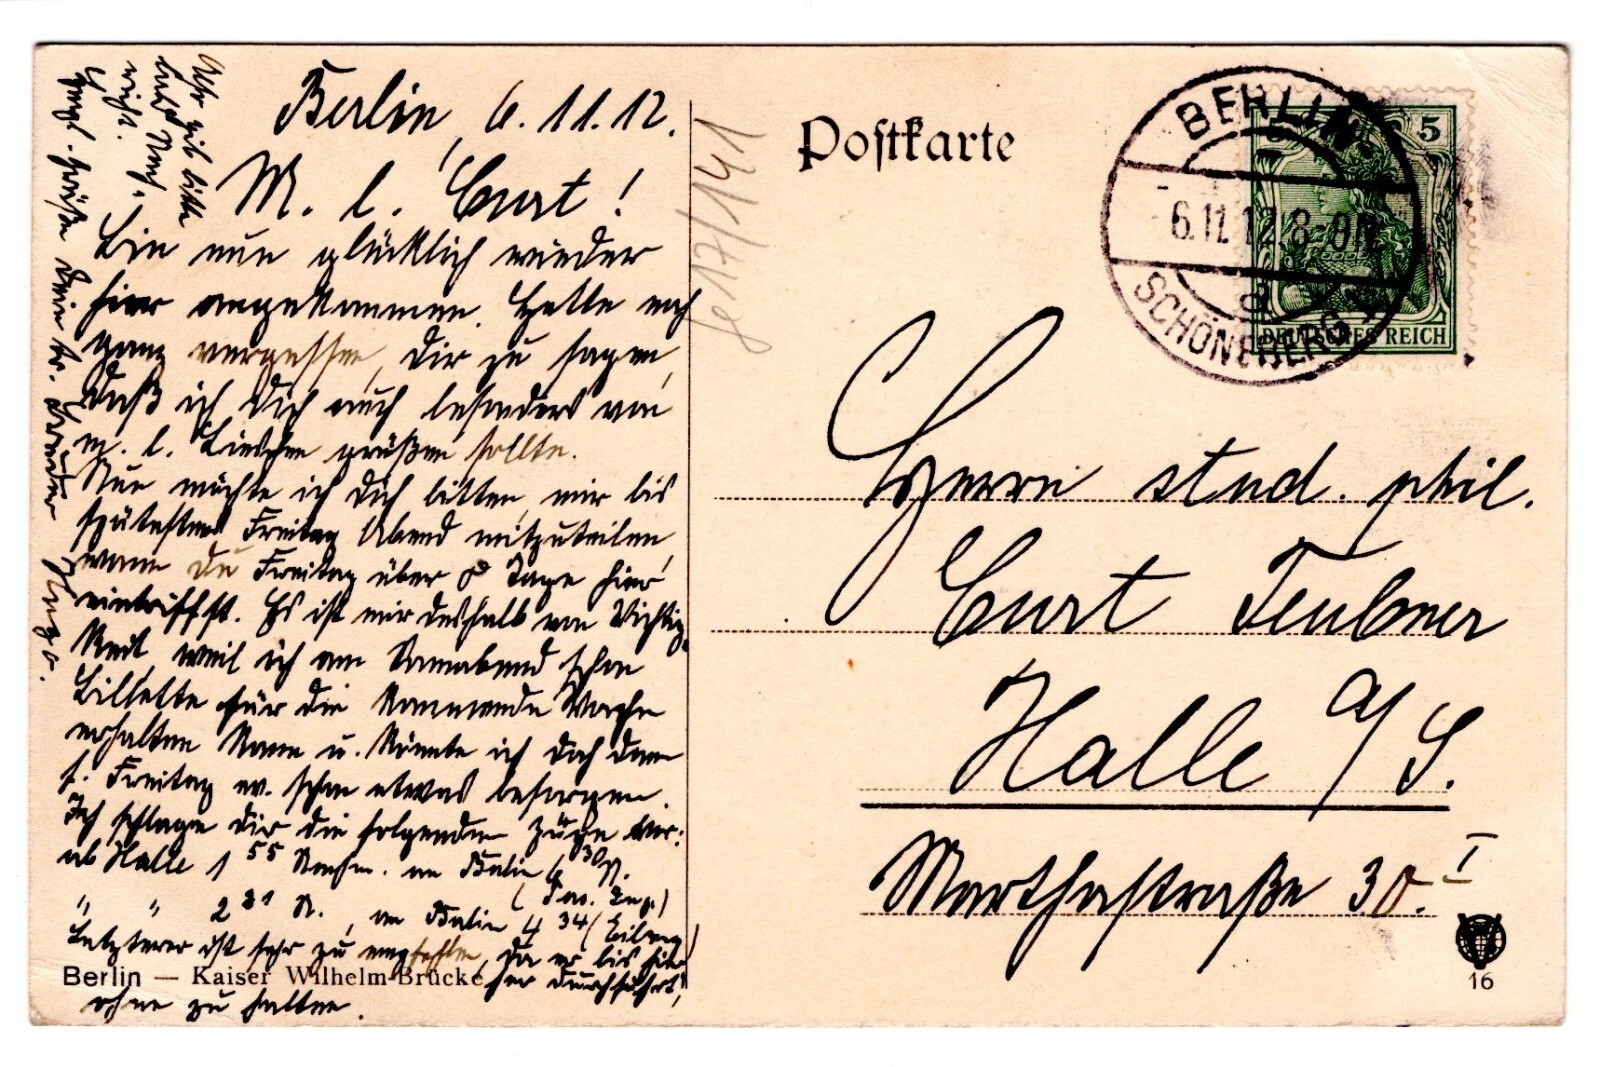 Berlin, 6.11.12.
M. l. Curt!
Bin nun glücklich wieder
hier angekommen. Hatte noch
ganz vergessen, Dir zu sagen,
daß ich Dich auch besonders von
m. l. Lieschen grüßen sollte.
Nun möchte ich Dich bitten, mir bis
spätestens Freitag Abend mitzuteilen,
wann Du Freitag über 8 Tage hier
eintriffst. Es ist mir deshalb von Wichtig-
keit, weil ich am Sonnabend schon
Billette für die kommende Woche
erhalten kann u. könnte ich doch dann
f. Freitag ev. schon etwas besorgen.
Ich schlage Dir die folgenden Züge vor:
ab Halle 1 55 Nachm. an Berlin 6 30 N.
(Pers. Zug)
" " 2 31 N., an Berlin 4 34 (Eilzug)
Letzterer ist sehr zu empfehlen, da er bis hier
her durchfährt,
ohne zu halten.
Aber gib bitte
bald Nach-
richt.
Herzl. grüßt Dein tr. Bruder Hugo.
Berlin — Kaiser Wilhelm-Brücke
Postkarte
5
DEUTSCHES REICH
BERLIN
6.11.12.8-9N
SCHÖNEBERG 1
Herrn stud. phil.
Curt Teubner
Halle a/S.
Marthastraße 30. I
16